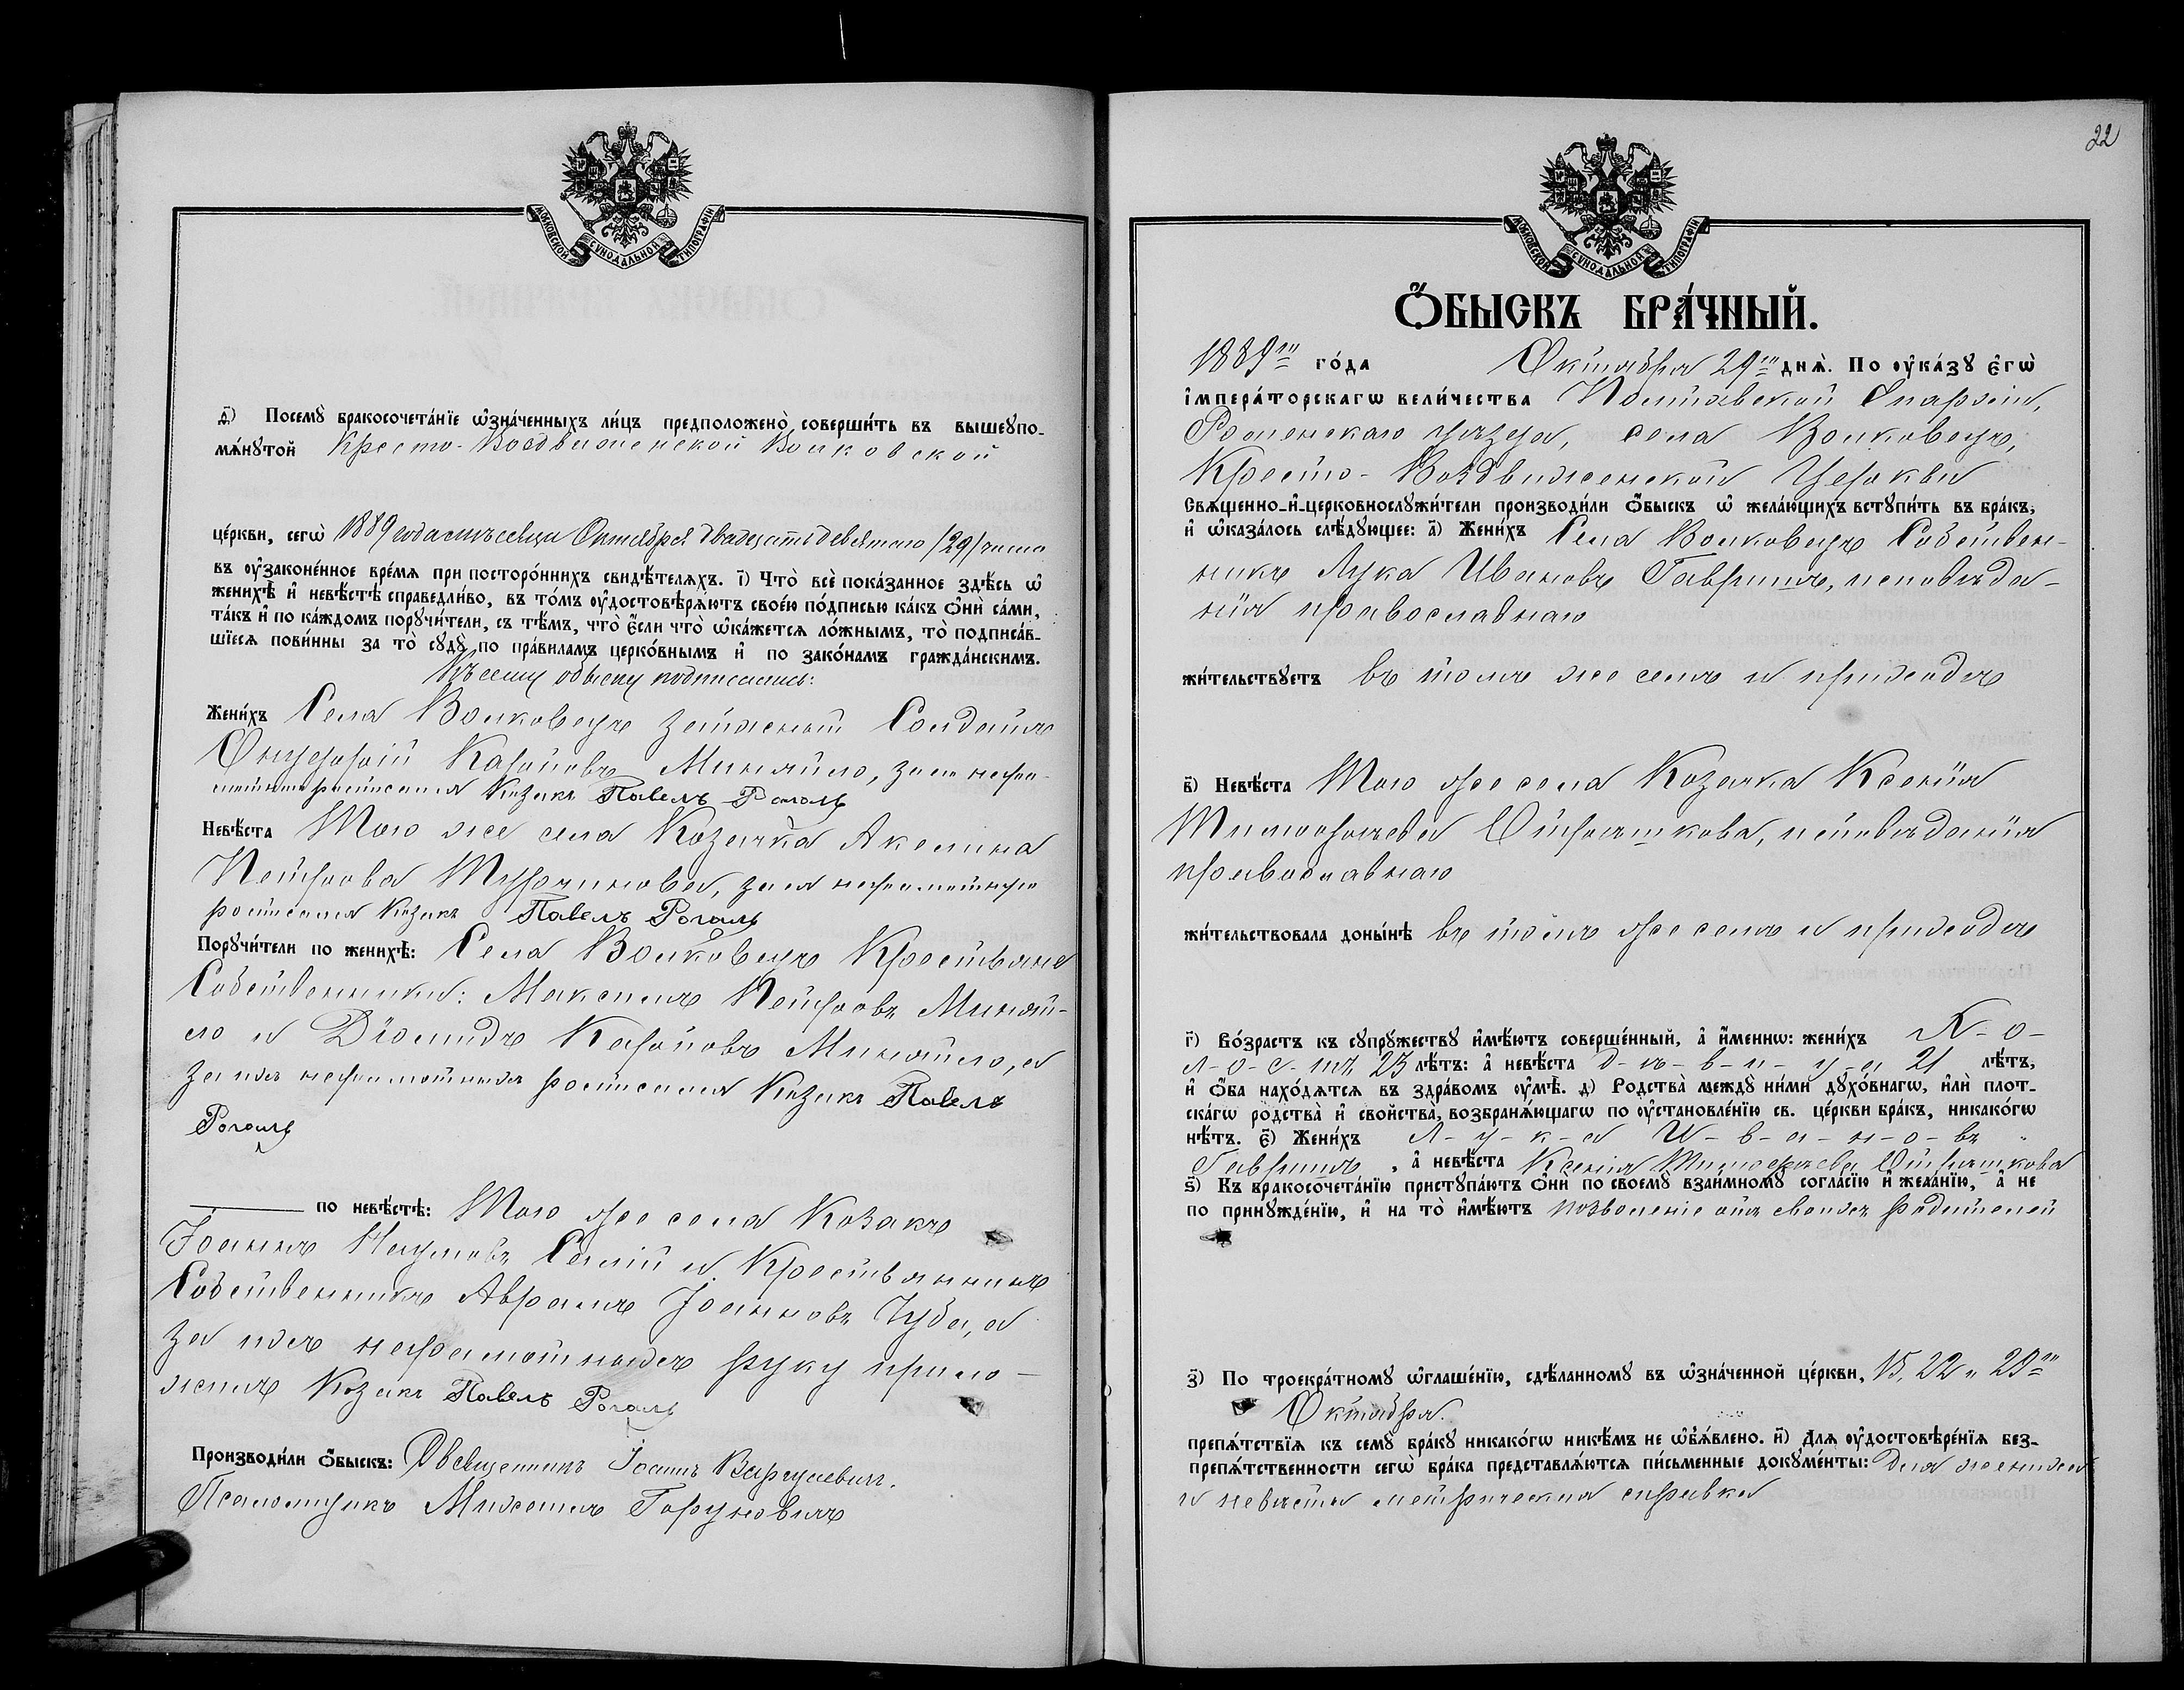 МОСКОВСКОЙ СѴНОДАЛЬНОЙ ТИПОГРАФІИ
Посемꙋ̀ бракосочета́нїе ѡ҆зна́ченныхъ ли́цъ предположено̀ соверши́ть въ вышеꙋпо-
мѧ́нꙋтой Кресто-Воздвиженской Волковской
це́ркви, сегѡ̀ 1889 года мѣсяца Октября двадцать девятаго /29/ числа
въ ᲂу҆законе́нное вре́мѧ при посторо́ннихъ свидѣ́телѧхъ. і҃) Что̀ всѐ пока́занное здѣ́сь ѡ҆
женихѣ̀ и҆ невѣ́стѣ справедли́во, въ то́мъ ᲂу҆достовѣрѧ́ютъ свое́ю по́дписью ка́къ ѻ҆нѝ са́ми,
та́къ и҆ по ка́ждомъ порꙋчи́тели, съ тѣ́мъ, что̀ є҆́сли что̀ ѡ҆ка́жетсѧ ло́жнымъ, то̀ подписа́в-
шїесѧ пови́нны за то̀ сꙋдꙋ̀ по пра́виламъ церко́внымъ и҆ по зако́намъ гражда́нскимъ.
Къ сему обыску подписались:
Жени́хъ Села Волковецъ запасный Солдатъ
Онуфрій Карповъ Миняйло, за него негра-
мотнаго росписался Козакъ Павелъ Рогаль
Невѣ́ста Того же села Козачка Акелина
Петрова Турчинова, за ея неграмотную
росписался Козакъ Павелъ Рогаль
Порꙋчи́тели по женихѣ̀: Села Волковецъ Крестьяне
Собственники: Максимъ Петровъ Миняй-
ло и Діомидъ Карповъ Миняйло, а
за ихъ неграмотныхъ росписался Козакъ Павелъ
Рогаль
по невѣ́стѣ: Того же села Козакъ
Іоаннъ Наумовъ Салій и Крестьянинъ
Собственникъ Аврамъ Іоанновъ Чуба, а
за ихъ неграмотныхъ руку прило-
жилъ Козакъ Павелъ Рогаль
Производи́ли ѻ҆́быскъ: Священникъ Іоаннъ
Псаломщикъ Михаилъ Горуновичъ
22
МОСКОВСКОЙ СѴНОДАЛЬНОЙ ТИПОГРАФІИ
Ѻ҆́БЫСКЪ БРА́ЧНЫЙ.
1889го го́да Октября 29го днѧ̀. По ᲂу҆ка́зꙋ є҆гѡ̀
і҆мпера́торскагѡ вели́чества Полтавской Епархіи,
Роменскаго уѣзда, села Волковецъ,
Кресто-Воздвиженской Церкви
Свѧще́нно-и҆-церковнослꙋжи́тели производи́ли ѻ҆́быскъ ѡ҆ жела́ющихъ встꙋпи́ть въ бра́къ,
и҆ ѡ҆каза́лось слѣ́дꙋющее: а҃) Жени́хъ Села Волковецъ Собствен-
никъ Лука Ивановъ Гавришъ, исповѣда-
нія православнаго
жи́тельствꙋетъ въ томъ же селѣ и приходѣ
в҃) Невѣ́ста Того же села Козачка Ксенія
Тимофѣева Отрѣшкова, исповѣданія
православнаго
жи́тельствовала доны́нѣ въ томъ же селѣ и приходѣ
г҃) Во́зрастъ къ сꙋпрꙋ́жествꙋ и҆мѣ́ютъ соверше́нный, а҆ и҆́меннѡ: жени́хъ Х-о-
л-о-с-тъ 23 лѣ́тъ: а҆ невѣ́ста д-ѣ-в-и-ц-а 21 лѣ́тъ,
и҆ ѻ҆́ба нахо́дѧтсѧ въ здра́вомъ ᲂу҆мѣ̀. д҃) Родства̀ междꙋ̀ ни́ми дꙋхо́внагѡ, и҆лѝ плот-
ска́гѡ родства̀ и҆ свойства̀, возбранѧ́ющагѡ по ᲂу҆становле́нїю св. це́ркви бра́къ, никако́гѡ
нѣ́тъ. є҃) Жени́хъ Л-у-к-а И-в-а-н-о-въ
Гавришъ, а҆ невѣ́ста Ксенія Тимофѣева Отрѣшкова
ѕ҃) Къ бракосочета́нїю пристꙋпа́ютъ ѻ҆нѝ по своемꙋ̀ взаи́мномꙋ согла́сїю и҆ жела́нїю, а҆ не
по принꙋжде́нїю, и҆ на то̀ и҆мѣ́ютъ позволеніе отъ своихъ родителей
з҃) По троекра́тномꙋ ѡ҆глаше́нїю, сдѣ́ланномꙋ въ ѡ҆зна́ченной це́ркви, 15, 22 и 29го
Октября.
препѧ́тствїѧ къ семꙋ̀ бра́кꙋ никако́гѡ никѣ́мъ не ѡ҆б̾ѧ́влено. и҃) Длѧ̀ ᲂу҆достовѣре́нїѧ без-
препѧ́тственности сегѡ̀ бра́ка представлѧ́ютсѧ пи́сьменные докꙋме́нты: Для жениха
и невѣсты метрическія справки